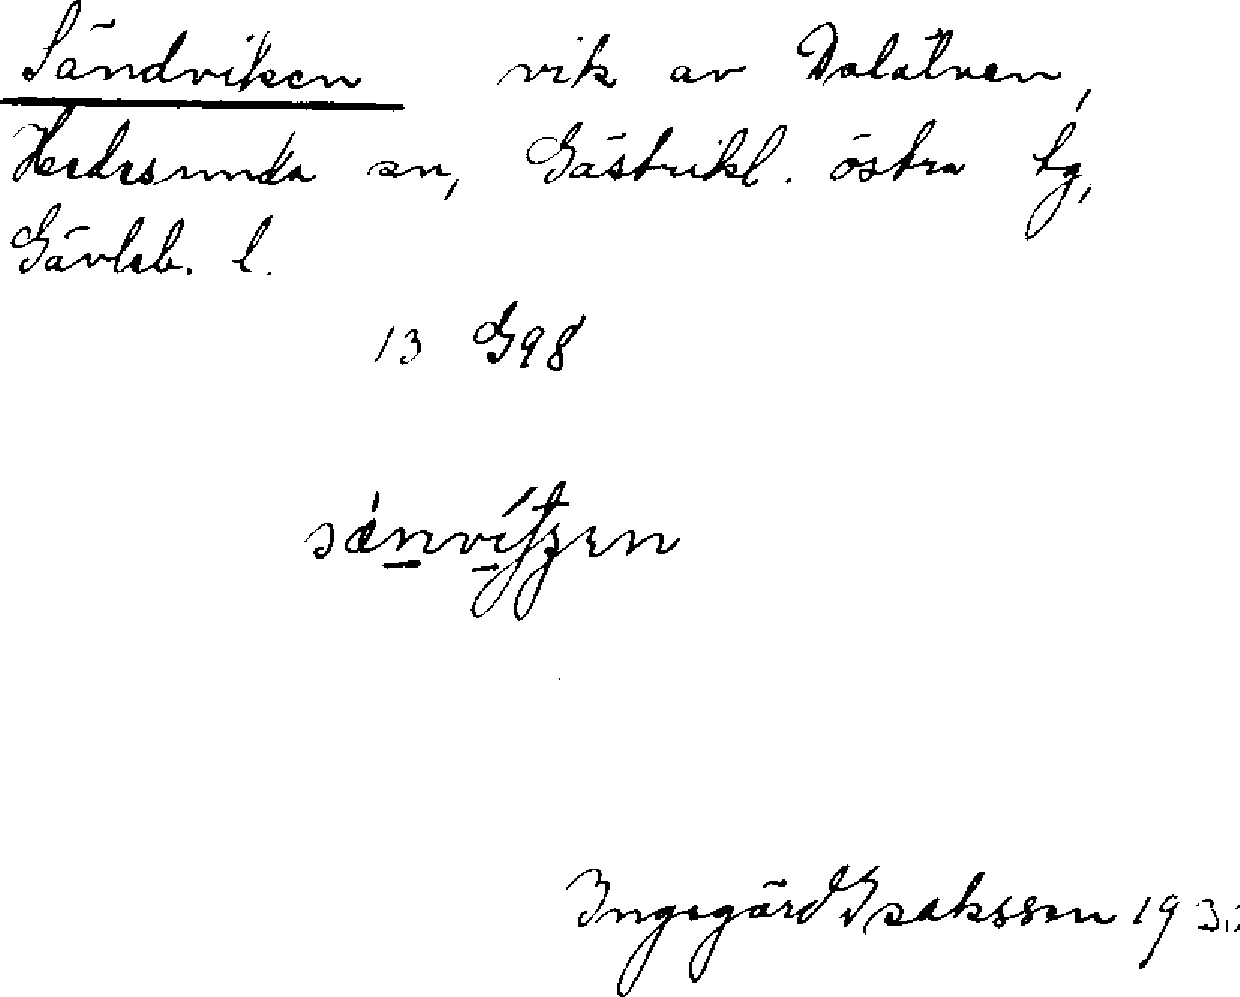 Sändviken vik av Dalälven,
Hedesunda sn, Gästrikl. östra tg,
Gävleb. l.
13 G98
Ingegärd Isaksson